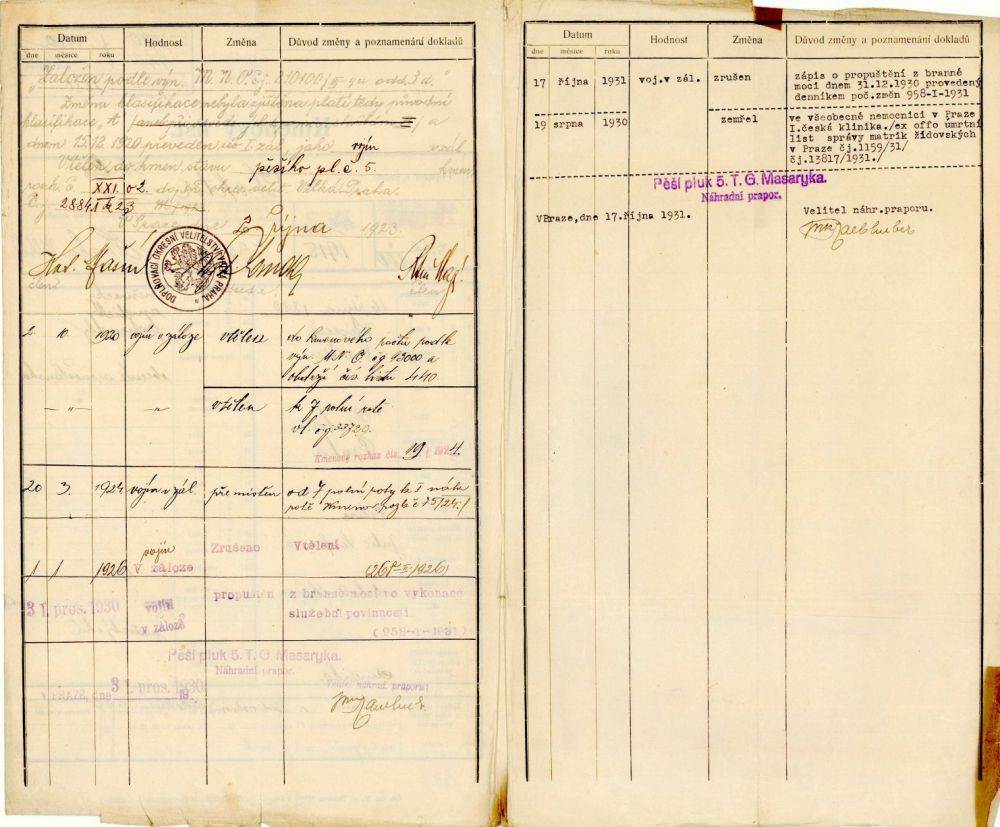 Datum Hodnost Změna Důvod změny a poznamenání dokladů
dne měsíce roku
"Založen podle výn. M.N.O. čj.
Změna klasifikace nebyla zjištěna platí tedy původní
klasifikace, A
dnem 15./12. 1920 převeden do I. zál. jako vojín
pěšího pl. č. 5.
XXI. o 2. Velká Praha.
28841 23
října 1923.
DOPLŇOVACÍ OKRESNÍ VELITELSTVÍ VELKÁ PRAHA
2. 10. 1920 vojín v záloze vtělen do kmenového počtu podle
výn. M.N.O. čj 43000 a
obdržel čís. listu 440
— " — — " — vtělen k 7 polní rotě
Kmenový rozkaz čís. 19 / 1924.
20 3. 1924 vojín v zál. přemístěn od 7 polní roty k I náhr.
rotě Kmenov. rozk. č 75/24./
vojín Zrušeno Vtělení
1 1 1926 v záloze
31. pros. 1930 vojín propuštěn z branné moci po vykonané
v záloze služební povinnosti.
(958-I-1931)
Pěší pluk 5. T. G. Masaryka.
Náhradní prapor.
V PRAZE, dne 31. pros. 1930 19 Velitel náhrad. praporu:
Datum Hodnost Změna Důvod změny a poznamenání dokladů
dne měsíce roku
17 října 1931 voj.v zál. zrušen zápis o propuštění z branné
moci dnem 31.12.1930 provedený
denníkem poč.změn 958-I-1931
19 srpna 1930 zemřel ve všeobecné nemocnici v Praze
I.česká klinika./ex offo umrtní
list správy matrik židovských
v Praze čj.1159/31/
čj.13817/1931./
Pěší pluk 5. T. G. Masaryka.
Náhradní prapor.
VPraze,dne 17.října 1931. Velitel náhr.praporu.